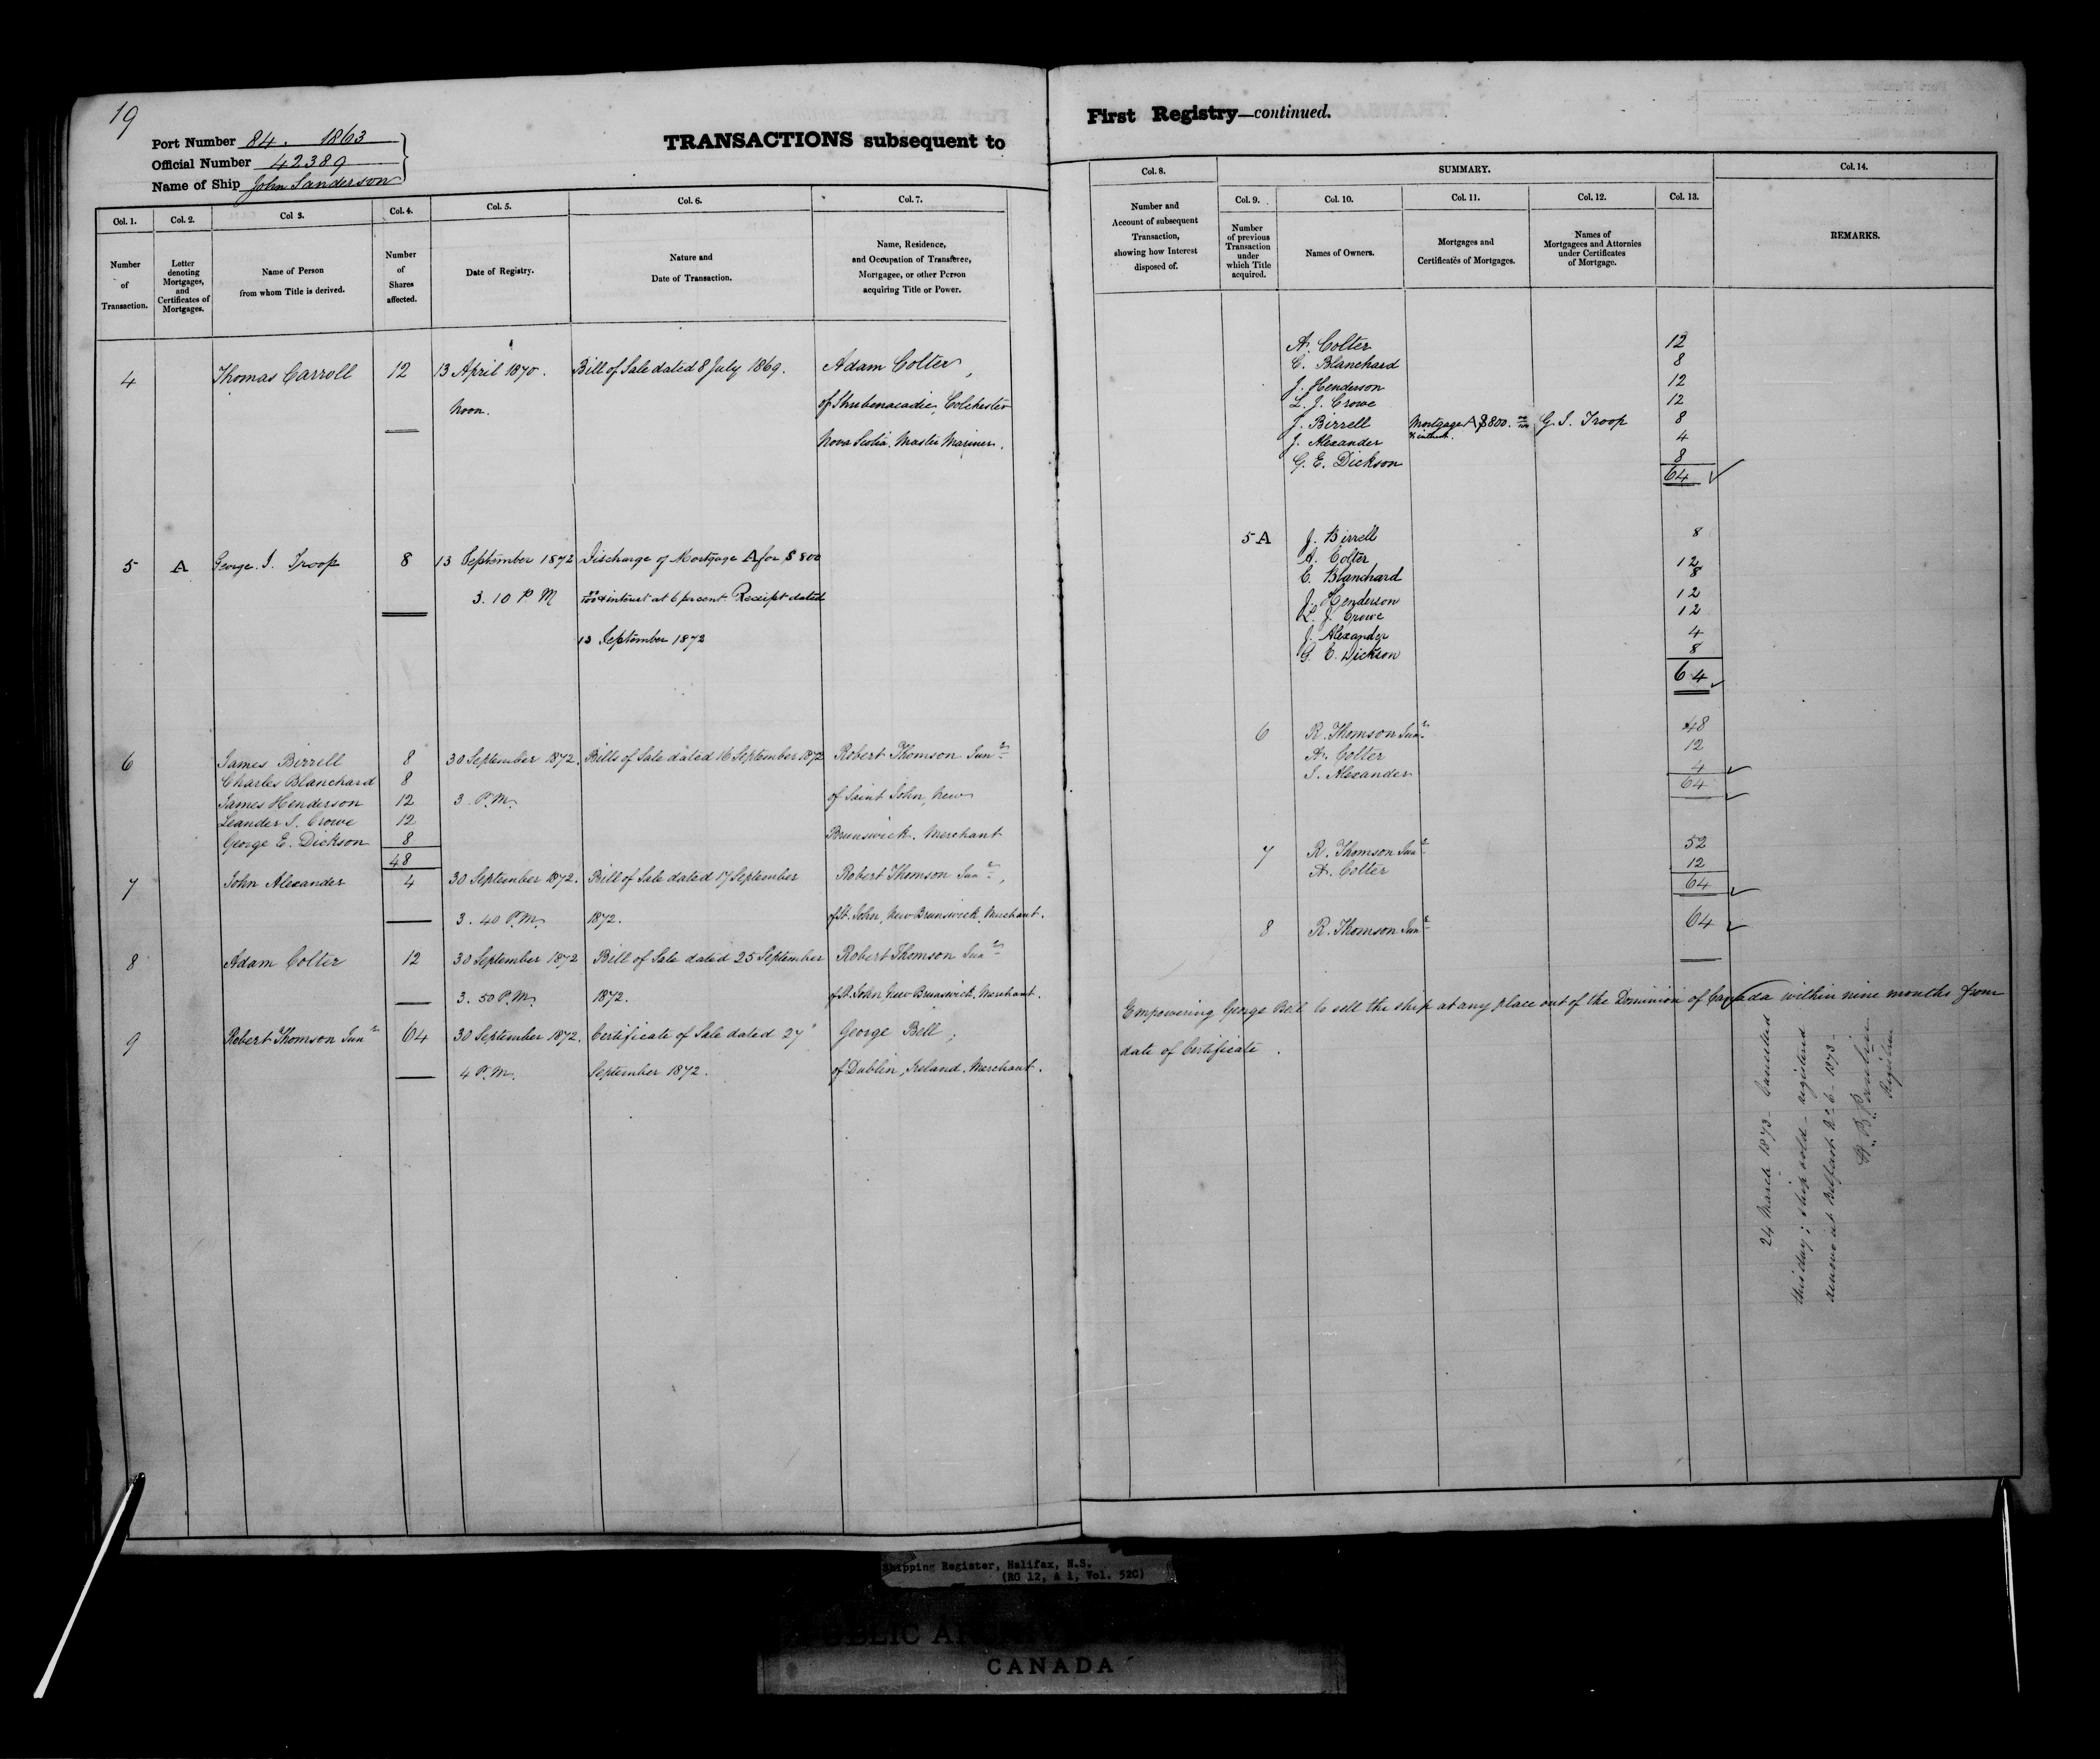 19
Port Number 84. 1863
Official Number 42389
Name of Ship John Sanderson
TRANSACTIONS subsequent to
Col. 1. Col. 2. Col 3. Col. 4. Col. 5. Col. 6. Col. 7.
Number of Transaction.
Letter denoting Mortgages, and Certificates of Mortgages.
Name of Person from whom Title is derived.
Number of Shares affected.
Date of Registry.
Nature and Date of Transaction.
Name, Residence, and Occupation of Transferee, Mortgagee, or other Person acquiring Title or Power.
4 Thomas Carroll 12 13 April 1870. Bill of Sale dated 8 July 1869. Adam Colter,
Noon. of Shubenacadie, Colchester
Nova Scotia, Master Mariner.
5 A George I. Troop 8 13 September 1872 Discharge of Mortgage A for $800
3. 10 P. M & interest at 6 percent. Receipt dated
13 September 1872
6 James Birrell 8 30 September 1872. Bills of Sale dated 16 September 1872 Robert Thomson Junr
Charles Blanchard 8
James Henderson 12 3. P.M. of Saint John, New
Leander J. Crowe 12
George E. Dickson 8 Brunswick. Merchant
48
7 John Alexander 4 30 September 1872. Bill of Sale dated 17 September Robert Thomson Junr,
3. 40 P.M. 1872. of St. John, New Brunswick, Merchant.
8 Adam Colter 12 30 September 1872 Bill of Sale dated 25 September Robert Thomson Junr
3. 50 P.M. 1872. of St. John, New Brunswick, Merchant.
9 Robert Thomson Junr 64 30 September 1872. Certificate of Sale dated 27" George Bell,
4 P.M. September 1872. of Dublin, Ireland. Merchant.
First Registry—continued.
Col. 8. SUMMARY. Col. 14.
Col. 9. Col. 10. Col. 11. Col. 12. Col. 13.
Number and Account of subsequent Transaction, showing how Interest disposed of.
Number of previous Transaction under which Title acquired.
Names of Owners.
Mortgages and Certificates of Mortgages.
Names of Mortgagees and Attornies under Certificates of Mortgage.
REMARKS.
A. Colter 12
C. Blanchard 8
J. Henderson 12
L. J. Crowe 12
J. Birrell Mortgage A $800. & interest. G. I. Troop 8
J. Alexander 4
G. E. Dickson 8
64
5 A J. Birrell 8
A. Colter 12
C. Blanchard 8
J. Henderson 12
L. J. Crowe 12
J. Alexander 4
G. E. Dickson 8
64
6 R. Thomson Junr 48
A. Colter 12
J. Alexander 4
64
7 R. Thomson Junr 52
A. Colter 12
64
8 R. Thomson Junr 64
Empowering George Bell to sell the ship at any place out of the Dominion of Canada within nine months from
date of Certificate.
24 March 1873 - Cancelled
this day; ship sold - registered
anew at Belfast No 6 - 1873 -
Registrar
Shipping Register, Halifax, N.S.
(RG 12, A 1, Vol. 52C)
PUBLIC
CANADA